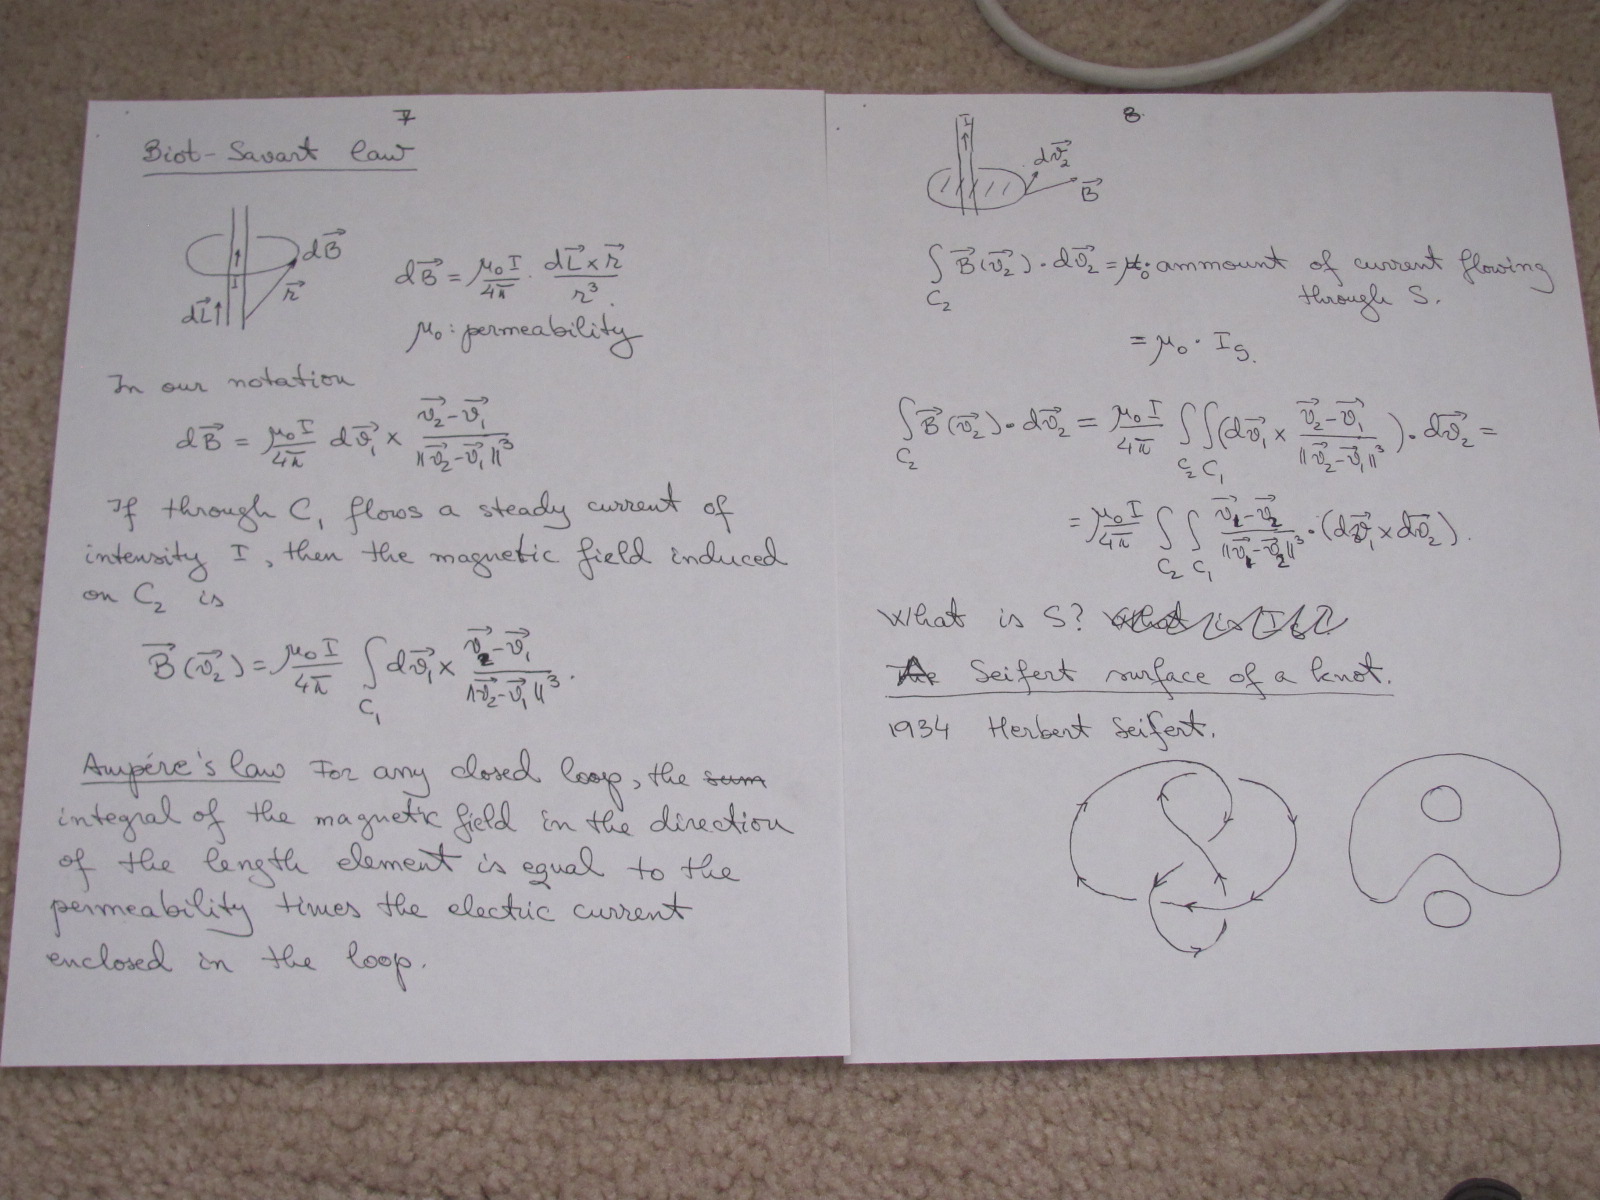 7
Biot-Savart law
dB⃗
I
r⃗
dL⃗
dB⃗ = μ₀I/4π · dL⃗ × r⃗ / r³.
μ₀: permeability
In our notation
dB⃗ = μ₀I/4π dv⃗₁ × (v⃗₂ - v⃗₁)/||v⃗₂ - v⃗₁||³
If through C₁ flows a steady current of
intensity I, then the magnetic field induced
on C₂ is
B⃗(v⃗₂) = μ₀I/4π ∫_C₁ dv⃗₁ × (v⃗₂ - v⃗₁)/||v⃗₂ - v⃗₁||³.
Ampére's law For any closed loop, the sum
integral of the magnetic field in the direction
of the length element is equal to the
permeability times the electric current
enclosed in the loop.
8.
I
dv⃗₂
B⃗
∫_C₂ B⃗(v⃗₂) · dv⃗₂ = μ₀· ammount of current flowing
through S.
= μ₀ · I_S.
∫_C₂ B⃗(v⃗₂) · dv⃗₂ = μ₀I/4π ∫_C₂ ∫_C₁ (dv⃗₁ × (v⃗₂ - v⃗₁)/||v⃗₂ - v⃗₁||³) · dv⃗₂ =
= μ₀I/4π ∫_C₂ ∫_C₁ (v⃗₁ - v⃗₂)/||v⃗₁ - v⃗₂||³ · (dv⃗₁ × dv⃗₂).
What is S? What is I_S?
The Seifert surface of a knot.
1934 Herbert Seifert.